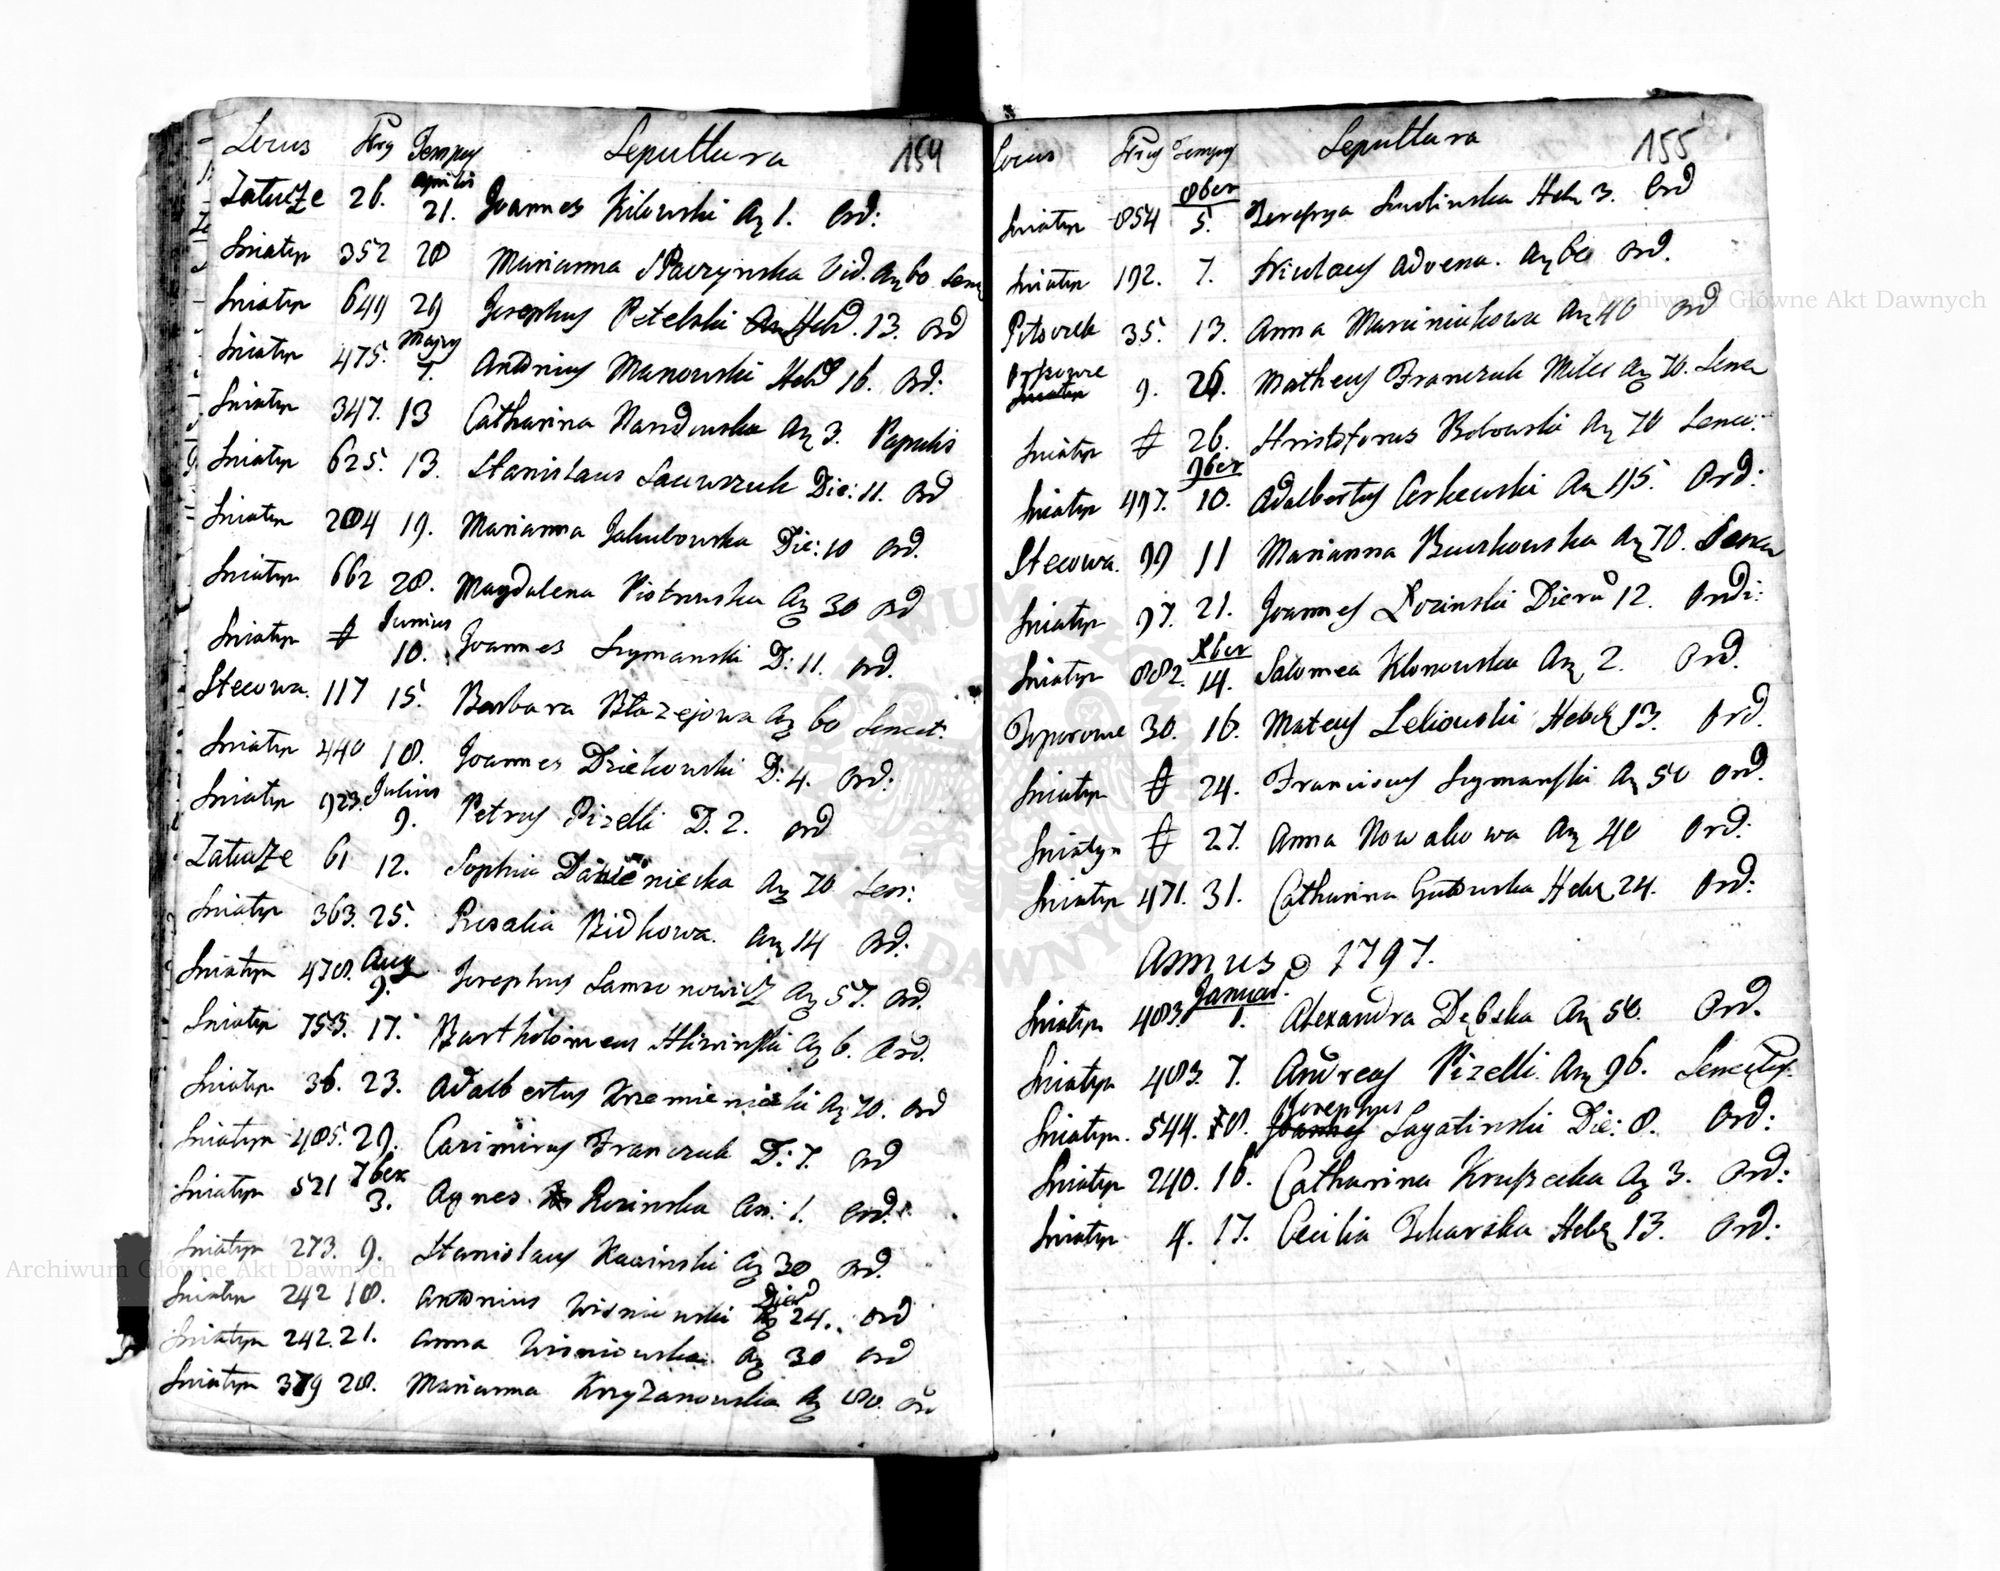 Locus Nrus Tempus Sepultura 154
Zatucze 26. Aprilis 21. Joannes Kilowski An 1. Ord:
Sniatyn 352 28 Marianna Vid. An 60 Senec
Sniatyn 649 29 Josephus Petelski Hebd. 13. Ord
Sniatyn 475. Majus 7. Antonius Manowski Hebd 16. Ord:
Sniatyn 347. 13 Catharina An 3. Papulis
Sniatyn 625. 13. Stanislaus Die: 11. Ord
Sniatyn 204 19. Marianna Jakubowska Die: 10 Ord.
Sniatyn 662 28. Magdalena Piotrowska An 30 Ord
Sniatyn Junius 10. Joannes Szymanski D: 11. Ord.
Stecowa. 117 15. Barbara Błazejowa An 60 Senect.
Sniatyn 440 18. Joannes Dziekowski D: 4. Ord:
Sniatyn 923. Julius 9. Petrus Pizelli D. 2. Ord
Zatucze 61 12. Sophia An 70 Sen:
Sniatyn 363. 25. Rosalia Bidkowa. An 14 Ord:
Sniatyn 478. Aug 9. Josephus Samsonowicz An 57. Ord.
Sniatyn 753. 17. Bartholomeus An 6. Ord.
Sniatyn 36. 23. Adalbertus Krzemienicki An 70. Ord
Sniatyn 485. 29. Casimirus Franczuk D: 7. Ord
Sniatyn 521 7ber 3. Agnes Rosinska An: 1. Ord:
Sniatyn 273. 9. Stanislaus An 30 Ord.
Sniatyn 242 18. Antonius Wisniewski Dier 24. Ord
Sniatyn 242. 21. Anna Wisniowska An 30 Ord
Sniatyn 379 28. Marianna Krzyzanowska An 80. Ord
Locus Nrus Tempus Sepultura 155
Sniatyn 854 8ber 5. Smolinska Hebd 3. Ord
Sniatyn 192. 7. Nicolaus Advena. An 60 Ord.
35. 13. Anna Marciniakowa An 40 Ord
9. 26. Matheus Franczuk Miles An 70. Senec
Sniatyn 26. Hristoforus An 70 Senec:
Sniatyn 497. 9ber 10. Adalbertus An 45. Ord:
Stecowa. 99 11 Marianna An 70. Senec
Sniatyn 97. 21. Joannes Lozinski Dieru 12. Ordi:
Sniatyn 882. Xber 14. Salomea Klonowska An 2. Ord.
Toporowce 30. 16. Mateus Hebd 13. Ord.
Sniatyn 24. Franciscus Szymanski An 50 Ord.
Sniatyn 27. Anna Nowakowa An 40 Ord:
Sniatyn 471. 31. Catharina Gutowska Hebd 24. Ord:
Annus D 1797.
Sniatyn 483. Januar. 1. Alexandra Dębska An 50. Ord.
Sniatyn 483. 7. Andreas Pizelli. An 96. Senectus.
Sniatyn. 544. 8. Josephus Joannes Sagatinski Die: 8. Ord:
Sniatyn 240. 16. Catharina An 3. Ord:
Sniatyn 4. 17. Cecilia Hebd 13. Ord:
Archiwum Główne Akt Dawnych
Archiwum Główne Akt Dawnych